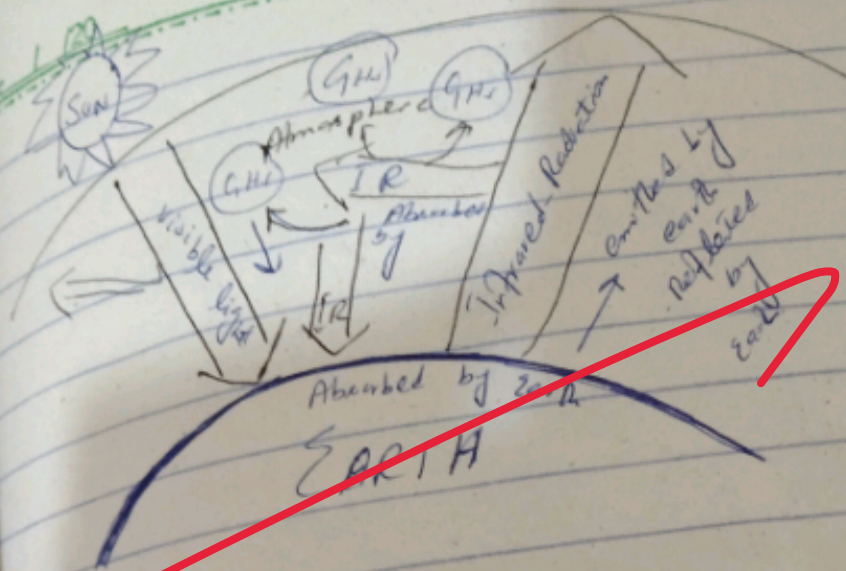 SUN
GHs
GHs
GHs
Atmosphere
IR
Absorbed
by
Visible
light
IR
Infrared-Radiation
emitted by
earth
Reflected
by
Earth
Absorbed by Earth
EARTH